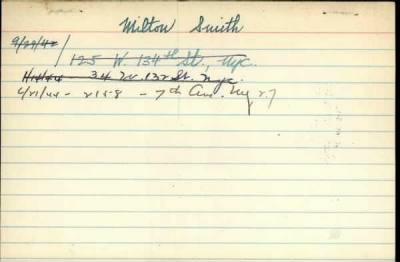 Milton Smith
9/29/42
125 W. 134th St., NYC.
1/14/44 34 W. 132 St. NYC.
6/21/44 - 2158 - 7th Ave. NY 27